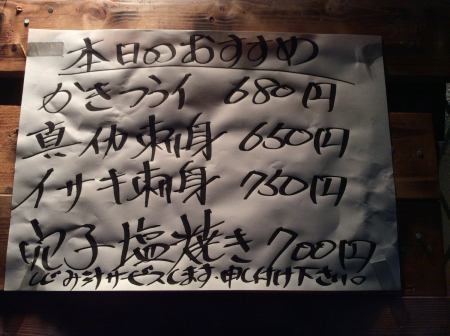 本日のおすすめ
かきフライ 680円
真イカ刺身 650円
イサキ刺身 750円
穴子塩焼き 700円
しじみ汁サービスします。申し付け下さい。